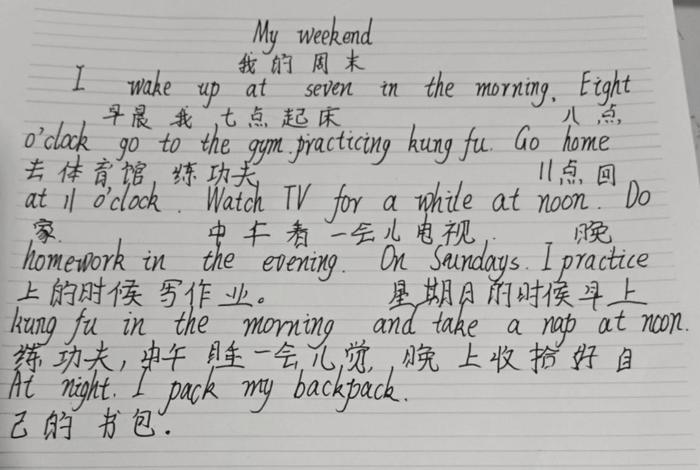 My weekend
我的周末
I wake up at seven in the morning, Eight
早晨我七点起床 八点
o'clock go to the gym practicing kung fu. Go home
去体育馆练功夫 11点回
at 11 o'clock. Watch TV for a while at noon. Do
家. 中午看一会儿电视. 晚
homework in the evening. On Saundays. I practice
上的时候写作业。 星期日的时候早上
kung fu in the morning and take a nap at noon.
练功夫,中午睡一会儿觉, 晚上收拾好自
At night. I pack my backpack.
己的书包.